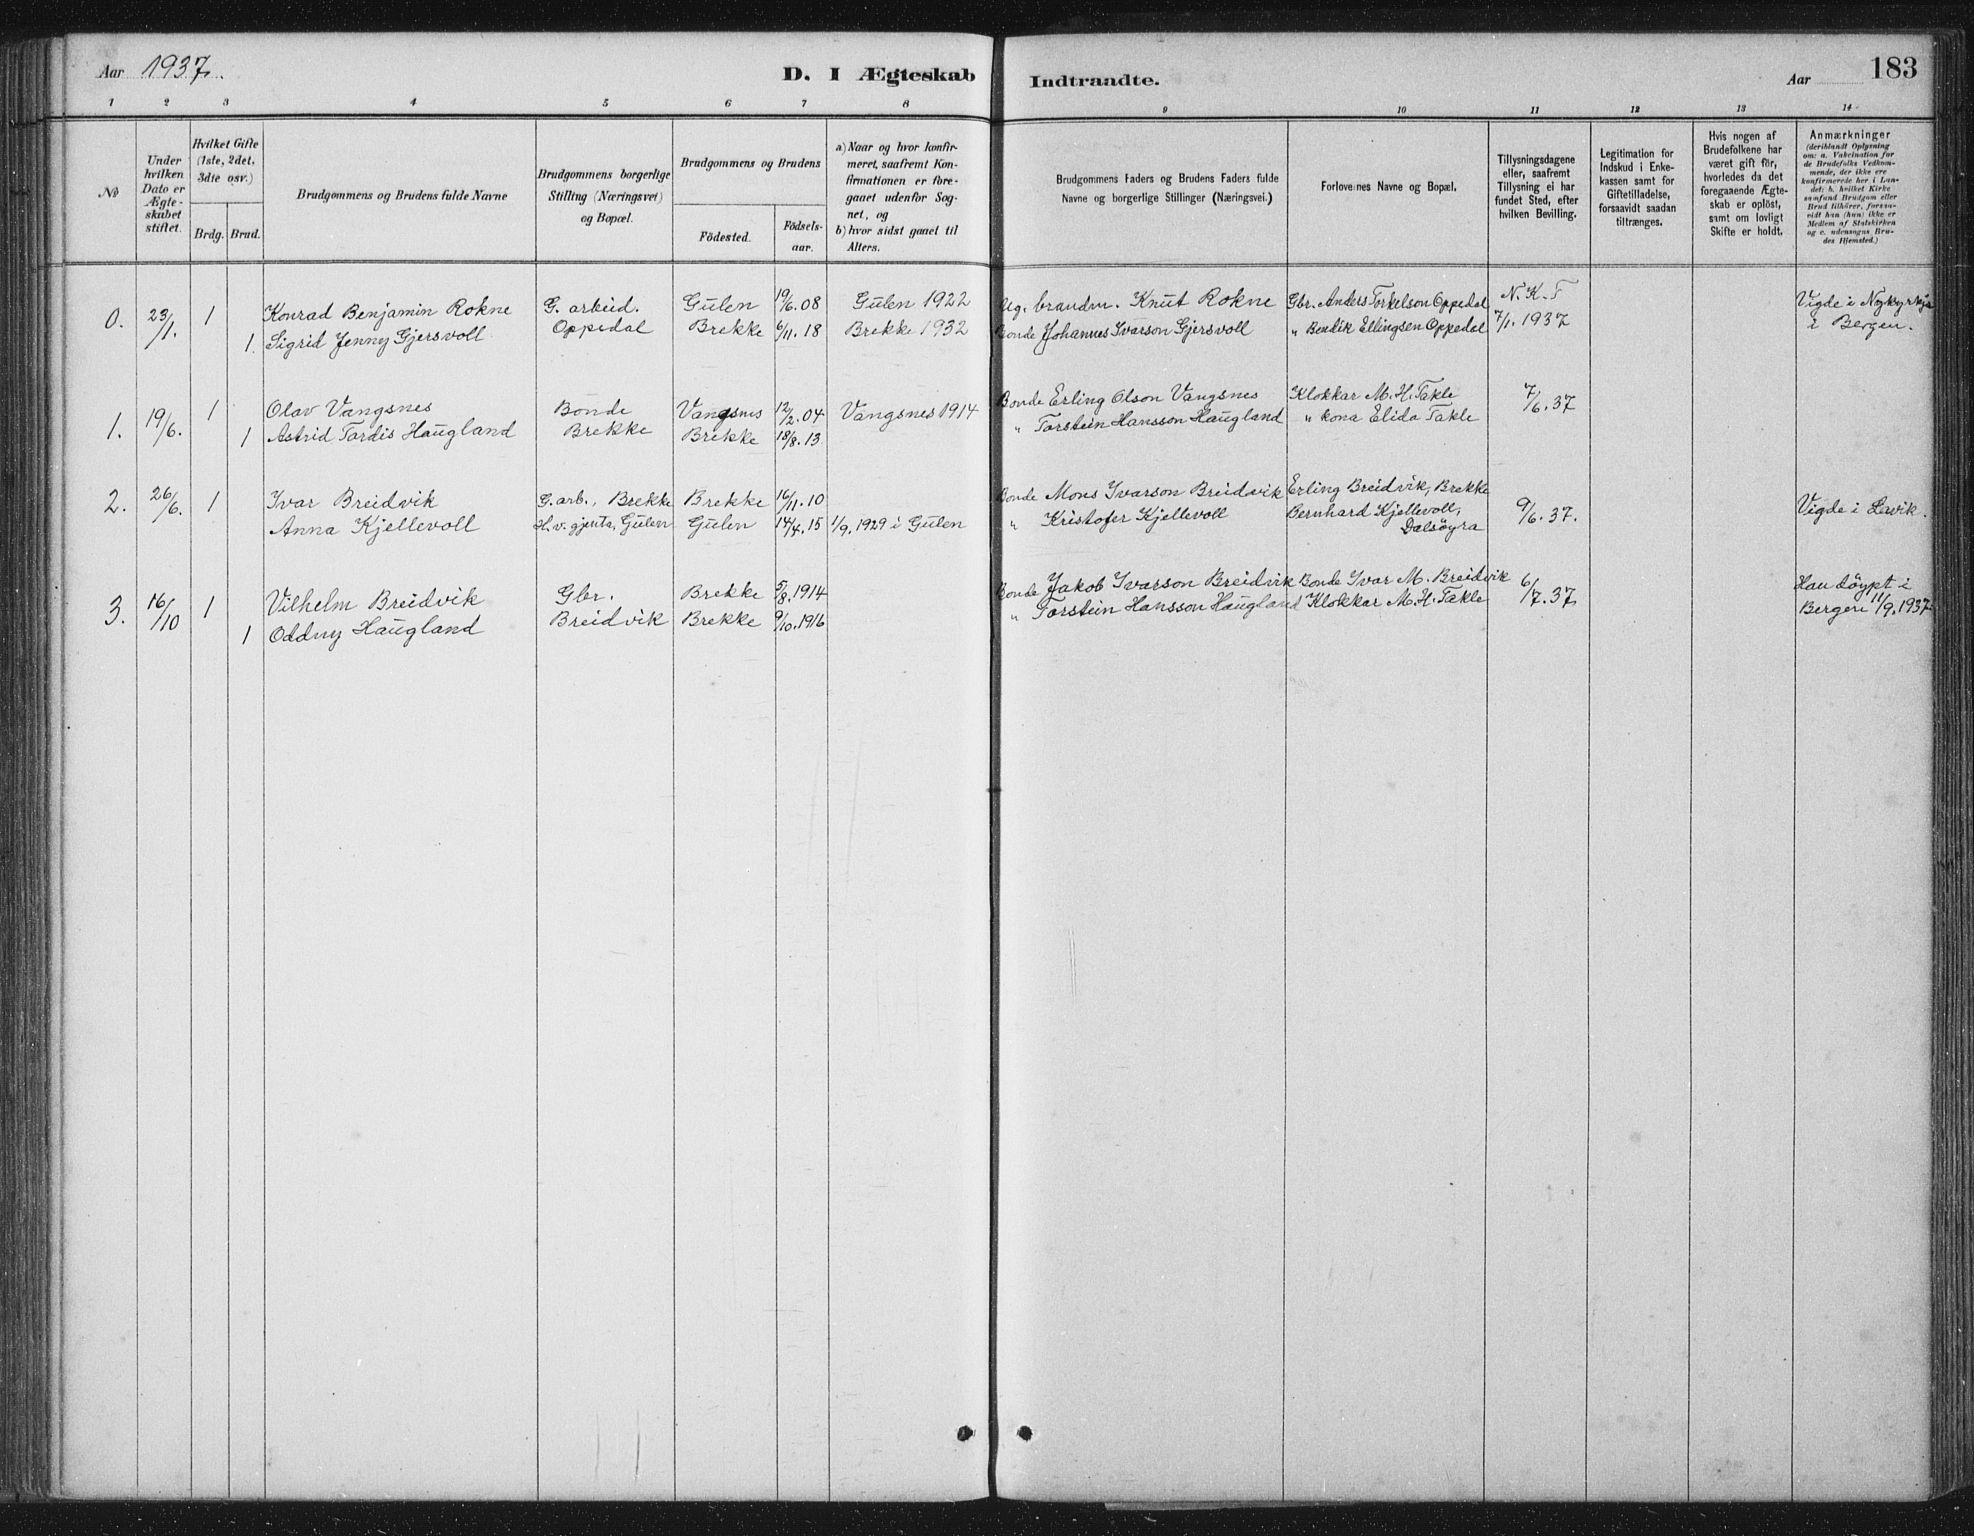 Aar 1937.
D. I Ægteskab Indtraadte.
Aar 183
1 2 3 4 5 6 7 8 9 10 11 12 13 14
No
Under hvilken Dato er Ægteskabet stiftet.
Hvilket Gifte (1ste, 2det, 3die osv.)
Brdg. Brud.
Brudgommens og Brudens fulde Navne
Brudgommens borgerlige Stilling (Næringsvei) og Bopæl.
Brudgommens og Brudens
Födested.
Födselsaar.
a) Naar og hvor konfirmeret, saafremt Konfirmationen er foregaaet udenfor Sognet, og
b) hvor sidst gaaet til Alters.
Brudgommens Faders og Brudens Faders fulde Navne og borgerlige Stillinger (Næringsvei.)
Forlovernes Navne og Bopæl.
Tillysningsdagene eller, saafremt Tillysning ei har fundet Sted, efter hvilken Bevilling.
Legitimation for Indskud i Enkekassen samt for Giftetilladelse, forsaavidt saadan tiltrænges.
Hvis nogen af Brudefolkene har været gift för, hvorledes da det foregaaende Ægteskab er oplöst, samt om lovligt Skifte er holdt.
Anmærkninger (deriblandt Oplysning om: a. Vakcination for de Brudefolks Vedkommende, der ikke ere konfirmerede her i Landet; b. hvilket Kirkesamfund Brudgom eller Brud tilhörer, forsaavidt han (hun) ikke er Medlem af Statskirken og c. udensogns Brudes Hjemsted.)
0. 23/1. 1 Konrad Benjamin Rokne G. arbeid. Gulen 19/6.08 Gulen 1922 Ug. brandm. Knut Rokne Gbr. Anders Torkelson Oppedal N.K.T Vigde i Nykyrkja
1 Sigrid Jenny Gjersvoll Oppedal Brekke 6/11.18 Brekke 1932 Bonde Johannes Ivarson Gjersvoll " Bendik Ellingsen Oppedal 7/1.1937 i Bergen.
1. 19/6. 1 Olav Vangsnes Bonde Vangsnes 12/2.04 Vangsnes 1914 Bonde Erling Olson Vangsnes Klokkar M.H. Takle 7/6.37
1 Astrid Tordis Haugland Brekke Brekke 18/8.13 " Torstein Hansson Haugland " kona Elida Takle
2. 26/6. 1 Ivar Breidvik G. arb., Brekke Brekke 16/11.10 Bonde Mons Ivarson Breidvik Erling Breidvik, Brekke 9/6.37. Vigde i Lavik.
Anna Kjellevoll H.v. gjenta, Gulen Gulen 14/4.15 1/9.1929 i Gulen " Kristofer Kjellevoll Bernhard Kjellevoll, Dalsöyra
3. 16/10 1 Vilhelm Breidvik Gbr. Brekke 5/8.1914 Bonde Jakob Ivarson Breidvik Bonde Ivar M. Breidvik 6/7.37 Han döypt i
1 Oddny Haugland Breidvik Brekke 9/10.1916 " Torstein Hansson Haugland Klokkar M.H. Takle Bergen 11/9.1937